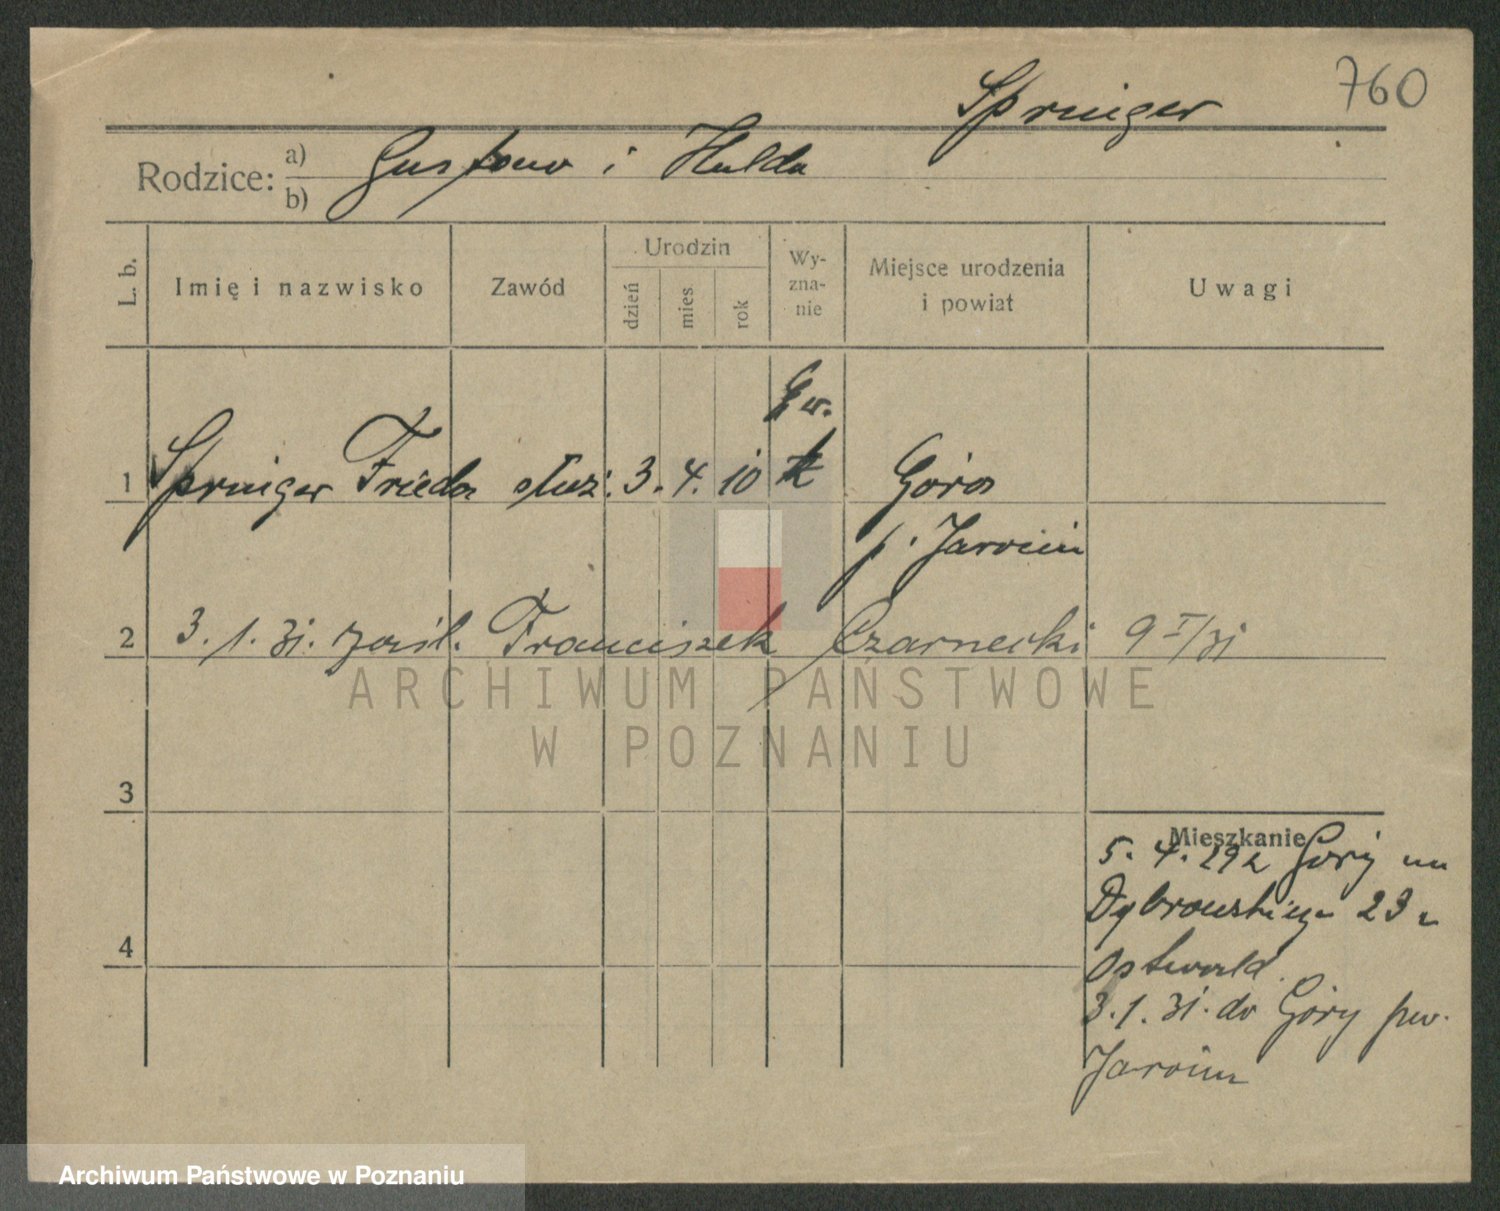 760
Springer
Rodzice: a) b) Gustaw i Hulda
L. b. Imię i nazwisko Zawód Urodzin dzień mies rok Wy-zna-nie Miejsce urodzenia i powiat Uwagi
Ew.
1 Springer Frieda służ. 3. 4. 10 Góra
p. Jarocin
2 3. 1. 31. zaśl. Franciszek Czarnecki 9 I/31
ARCHIWUM PAŃSTWOWE
W POZNANIU
3
Mieszkanie
5. 4. 29 z Góry na
4 Dąbrowskiego 23 u
Ostwald.
3. 1. 31. do Góry pow.
Jarocin
Archiwum Państwowe w Poznaniu